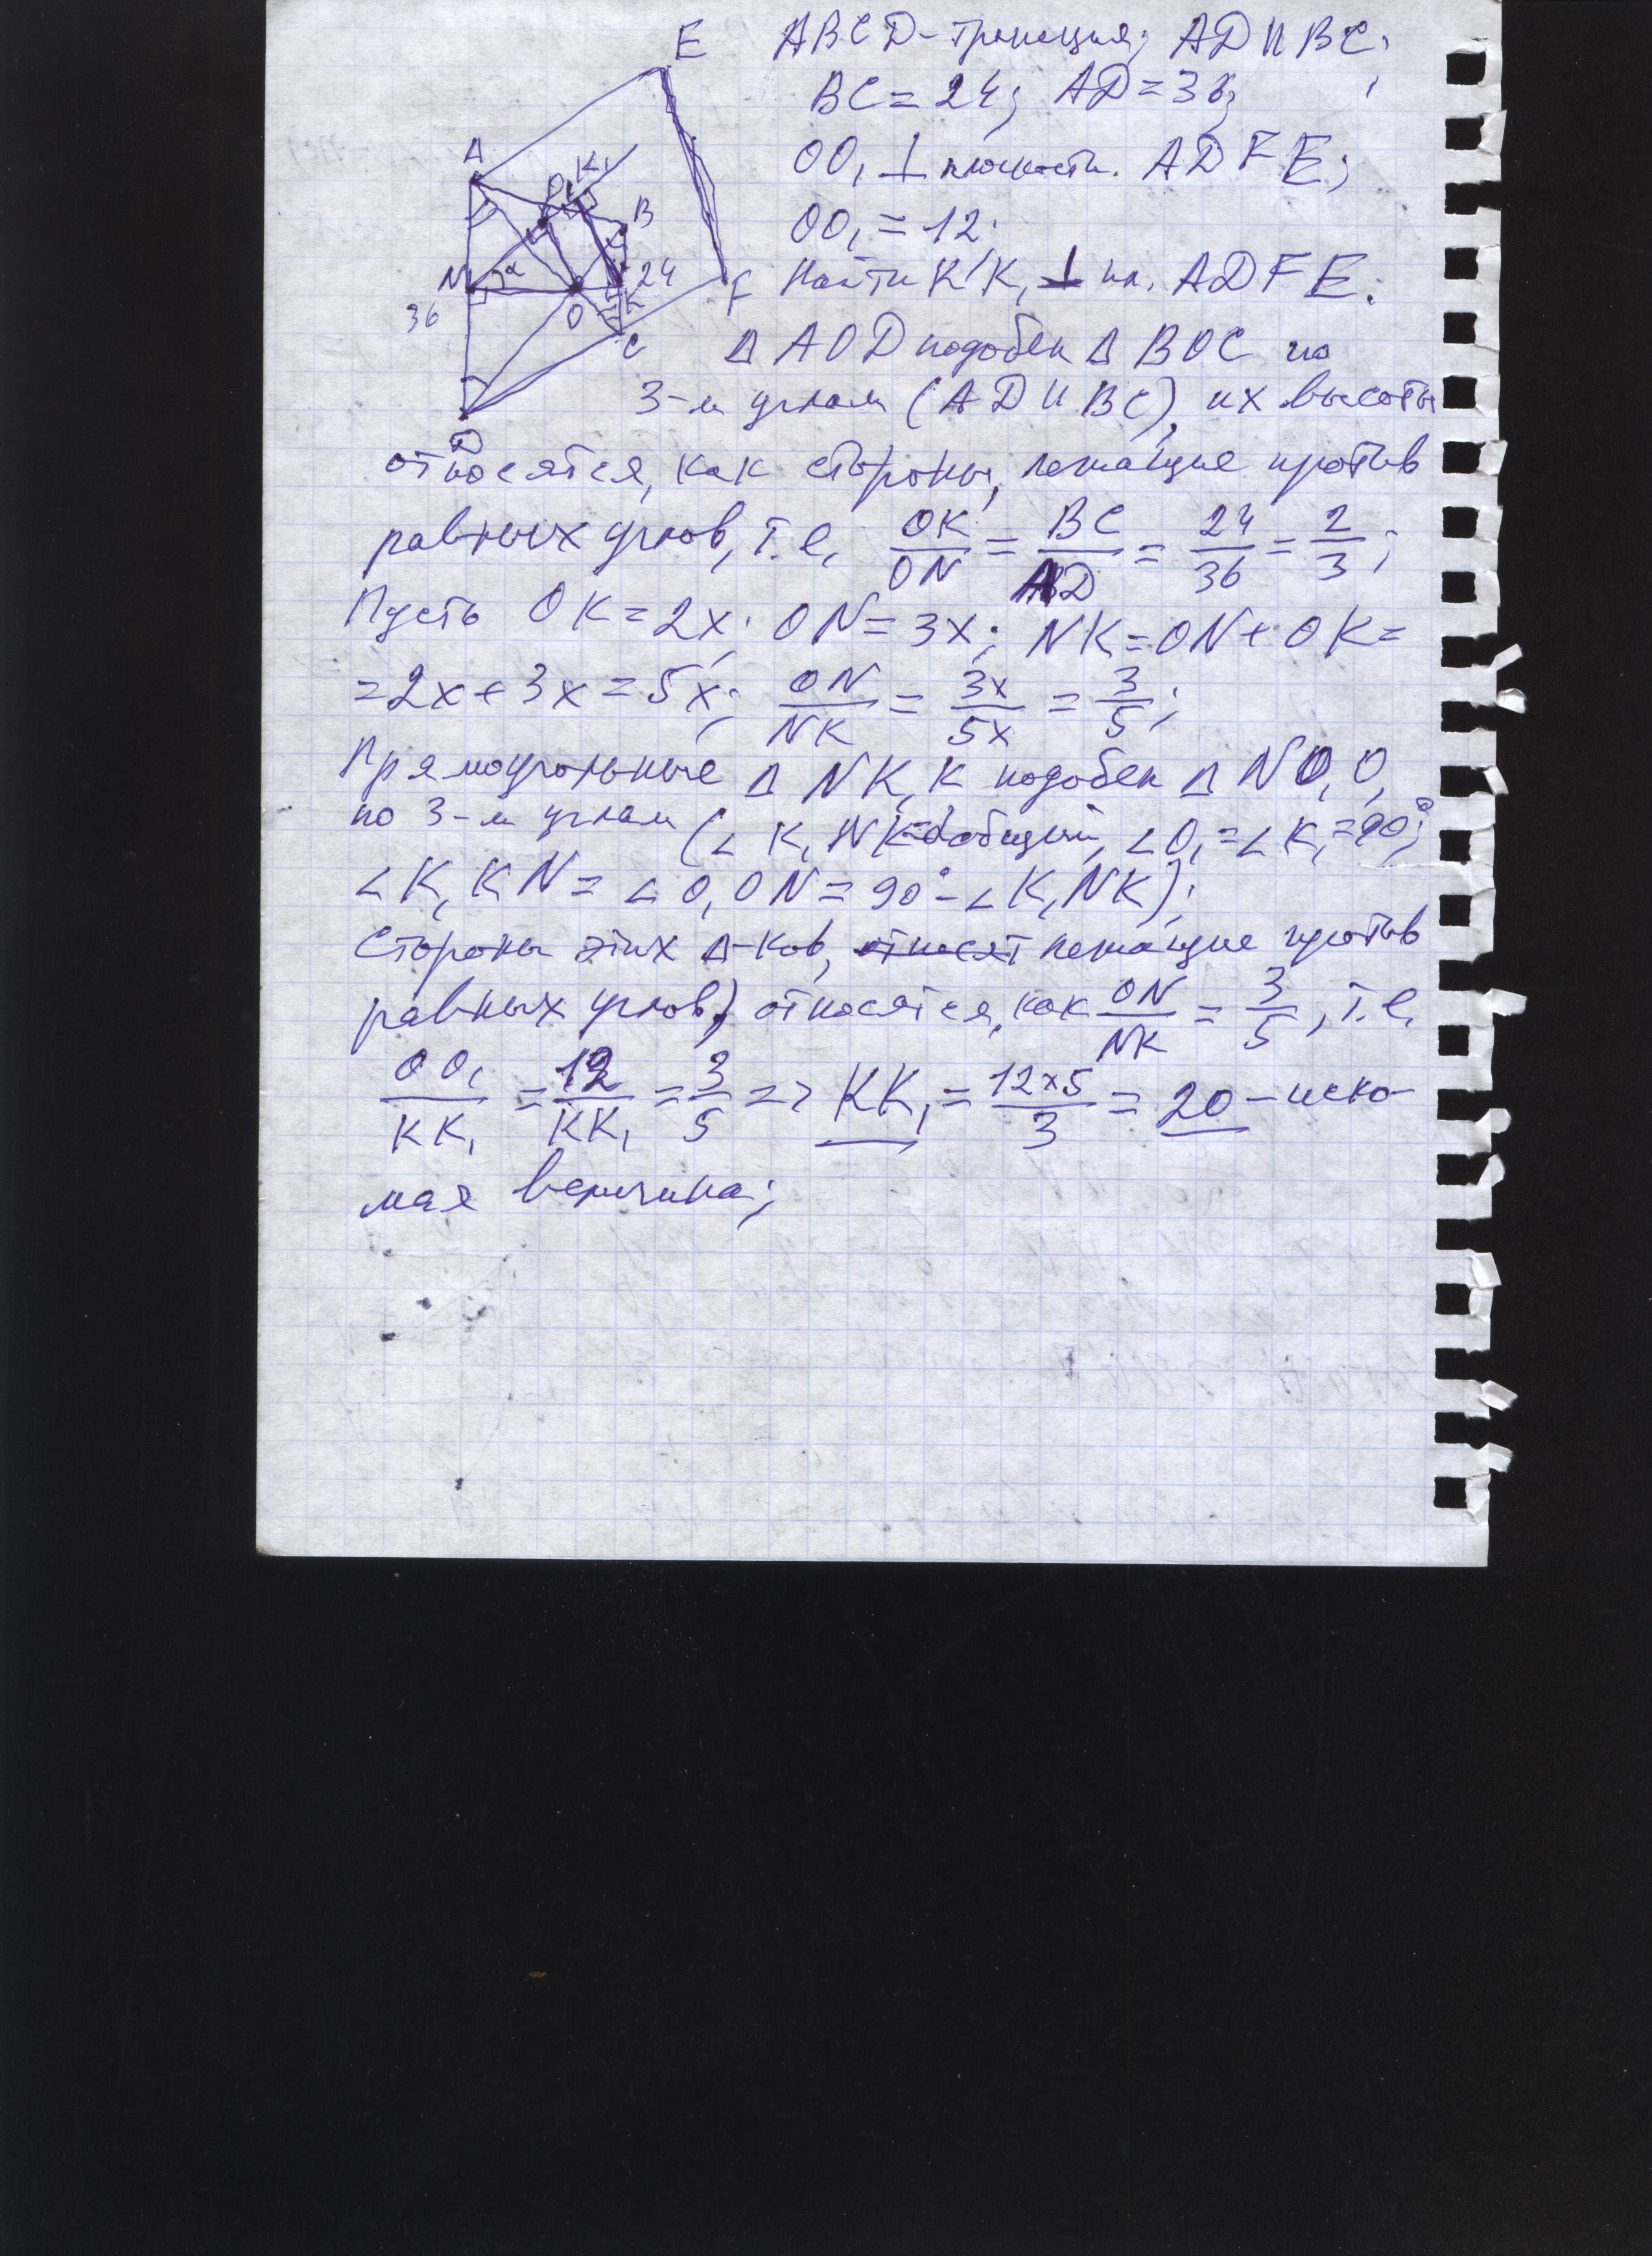 ABCD-трапеция; AD || BC;
BC = 24; AD = 36;
OO₁ ⊥ плоскости. ADFE;
OO₁ = 12;
Найти KK₁ ⊥ пл. ADFE.
Δ AOD подобен Δ BOC по
3-м углам (AD || BC), их высоты
относятся, как стороны, лежащие против
равных углов, т.е. OK/ON = BC/AD = 24/36 = 2/3;
Пусть OK = 2x; ON = 3x; NK = ON + OK =
= 2x + 3x = 5x; ON/NK = 3x/5x = 3/5;
Прямоугольные Δ NK₁K подобен Δ NO₁O,
по 3-м углам (∠ K₁NK=α общий, ∠O₁ = ∠K₁ = 90°;
∠ K₁KN = ∠ O₁ON = 90° - ∠ K₁NK);
Стороны этих Δ-ков, относят лежащие против
равных углов, относятся, как ON/NK = 3/5, т.е.
OO₁/KK₁ = 12/KK₁ = 3/5 => KK₁ = 12x5/3 = 20 - иско-
мая величина;
E
A
O₁ K₁
B
N α
24
F
36
O
K
C
D